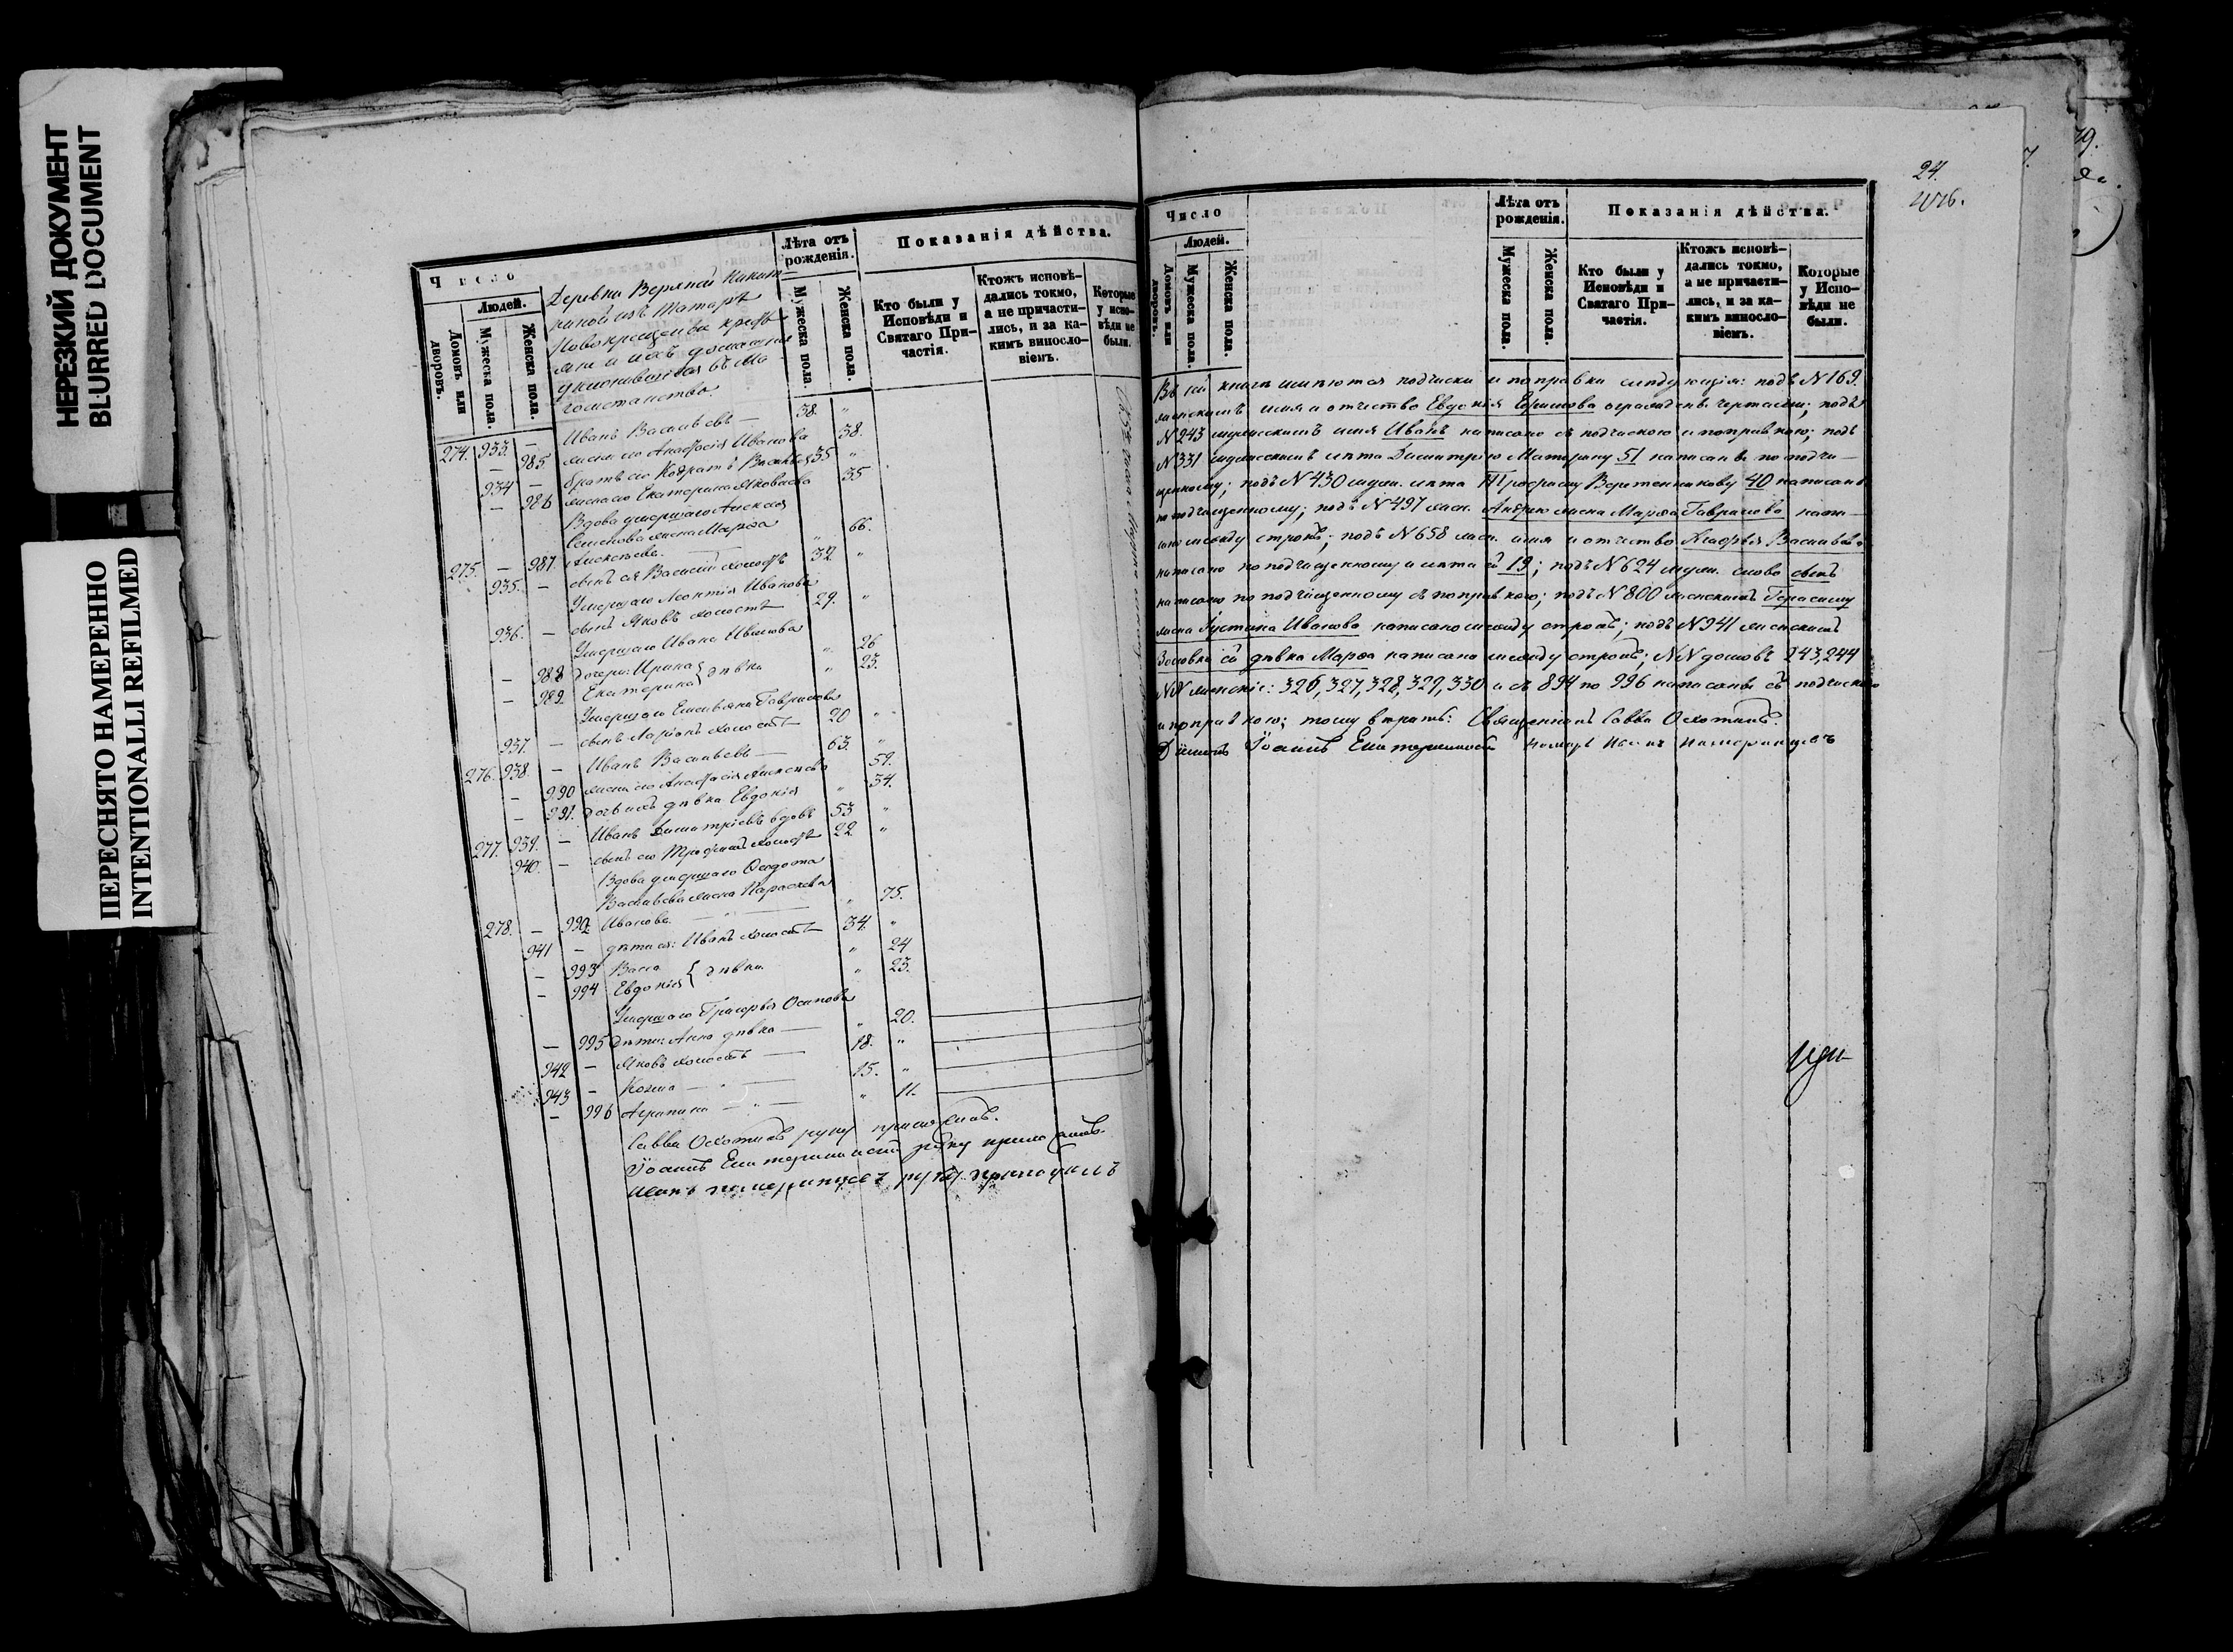 НЕРЕЗКИЙ ДОКУМЕНТ
BLURRED DOCUMENT
ПЕРЕСНЯТО НАМЕРЕННО
INTENTIONALLI REFILMED
Число
Людей.
Домовъ или дворовъ.
Мужеска пола.
Женска пола.
Деревни Верхней Никит-
киной изъ Татаръ
Новокрещены крестья-
яне и ихъ домашніе
уклонившіеся въ Ма-
гометанство.
Лѣта отъ рожденія.
Мужеска пола.
Женска пола.
Показанія дѣйства.
Кто были у Исповѣди и Святаго При-частія.
Ктожъ исповѣ-дались токмо, а не причасти-лись, и за ка-кимъ винословіемъ.
Которые у испо-вѣди не были.
274. 933. — Иванъ Васильевъ — 38. "
— 985 жена его Анастасія Иванова 38.
934 — братъ его Кодратъ Васильевъ 35 "
— 986 жена его Екатерина Яковлева 35
Вдова умершаго Алексѣя
Семенова жена Марѳа
275. — 987. Алексѣева. — " 66.
935. — сынъ ея Василій холостъ 32. "
Умершаго Леонтія Иванова
936. — сынъ Яковъ холостъ 29. "
Умершаго Ивана Иванова
— 988 дочери: Ирина } дѣвки " 26
— 989 Екатерина " 23.
Умершаго Гаврилова
937. — сынъ Ларіонъ холостъ 20 "
276. 938. — Иванъ Васильевъ — 63. "
— 990 жена его Анастасія Алексѣева 59.
— 991. дочь ихъ дѣвка Евдокія " 34.
277. 939. — Иванъ Димитріевъ вдовъ 53 "
940. — сынъ его Трофимъ холостъ 22. "
Вдова умершаго Ѳедота
Васильева жена Параскева
278. — 992 Иванова — " 75.
941 — дѣти ея: Иванъ холостъ 34. "
— 993 Васса { дѣвки " 24
— 994 Евдокія " 23.
Умершаго Григорья Осипова
— 995 Дѣти: Анна дѣвка — " 20.
942 — Яковъ холостъ — 18. "
943 — Козма — " — 15. "
— 996 Агрипина — " — " 11.
Савва Охотинъ руку приложилъ.
Іоаннъ руку приложилъ.
Иванъ руку приложилъ
24.
Число
Людей.
Домовъ или дворовъ.
Мужеска пола.
Женска пола.
Лѣта отъ рожденія.
Мужеска пола.
Женска пола.
Показанія дѣйства.
Кто были у Исповѣди и Святаго При-частія.
Ктожъ исповѣ-дались токмо, а не причасти-лись, и за ка-кимъ винословіемъ.
Которые у Испо-вѣди не были.
Въ сей книгѣ имѣются подчиски и поправки слѣдующія: подъ N 169.
женскимъ имя и отчество Евдокія Ефимова ограждены чертами; подъ
N 243 мужескимъ имя Иванъ написано съ подчискою и поправкою; подъ
N 331 мужескимъ лѣта Димитрію Матюрину 51 написаны по подчи-
щенному; подъ N 430 муж. лѣта Трофиму Веретенникову 40 написано
по подчищенному; подъ N 497 жен. Андрею жена Марѳа Гаврилова напи-
сано между строкъ; подъ N 658 жен. имя и отчество Васильева
написано по подчищенному и лѣта ей 19; подъ N 624 муж. слово сынъ
написано по подчищенному съ поправкою; подъ N 800 женскимъ Герасиму
жена Іустина Иванова написано между строкъ; подъ N 941 женскимъ
Золовка ей дѣвка Марѳа написано между строкъ; NN домовъ 243, 244
NN женскіе: 326, 327, 328, 329, 330 и съ 894 по 996 написаны съ подчискою
и поправкою; тому вѣрить: Священникъ Савва Охотинъ.
Іоаннъ